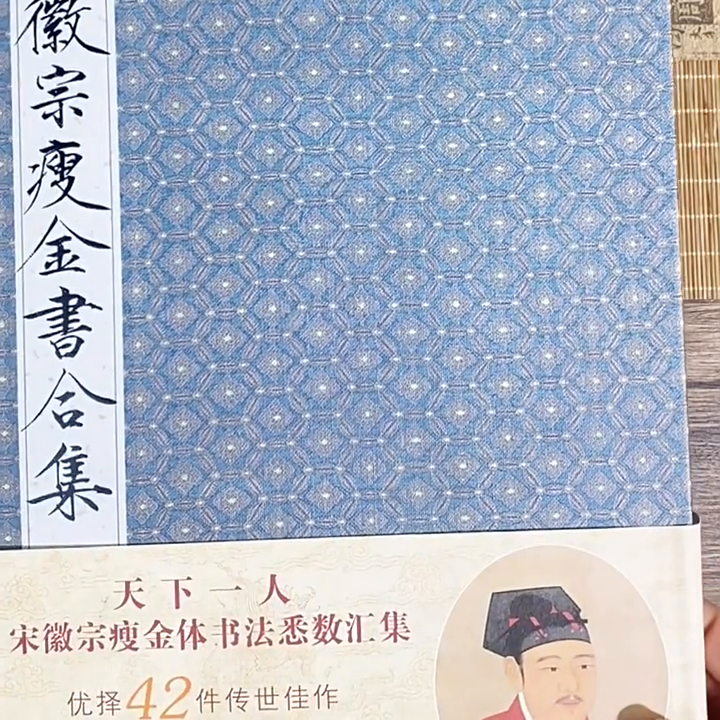 徽宗瘦金書合集
天下一人
宋徽宗瘦金体书法悉数汇集
优择42件传世佳作